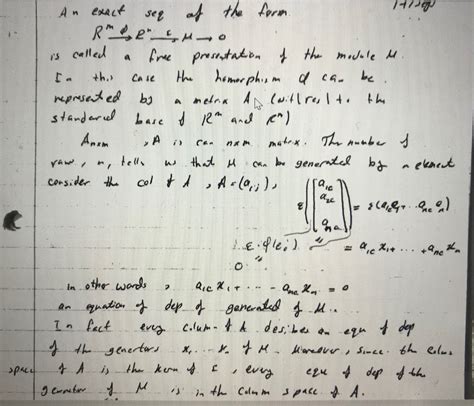 An exact seq of the form
R^m →^φ R^n →^ε M → 0
is called a free presentation of the module M.
In this case the homorphism φ can be
represented by a metrix A (with res[ to the
standered base of R^m and R^n)
A n×m , A is can n×m matrix. The number of
raw, n, tells us that M can be generated by n element
consider the col of A, A=(a_ij),
ε([a_1c a_2c ⋮ a_nc]) = ε(a_1c e_1 + ... a_nc e_n)
ε∘φ(e_i) = a_1c x_1 + ... + a_nc x_n
0
In other words, a_1c x_1 + - - - a_nc x_n = 0
an equation of dep of generated of M.
In fact every column of A desibes an equ of dep
of the genertors x_1 ... x_n of M. Moreover, since the colum
space of A is the kern of ε, every equ of dep of the
genrator of M is in the column space of A.